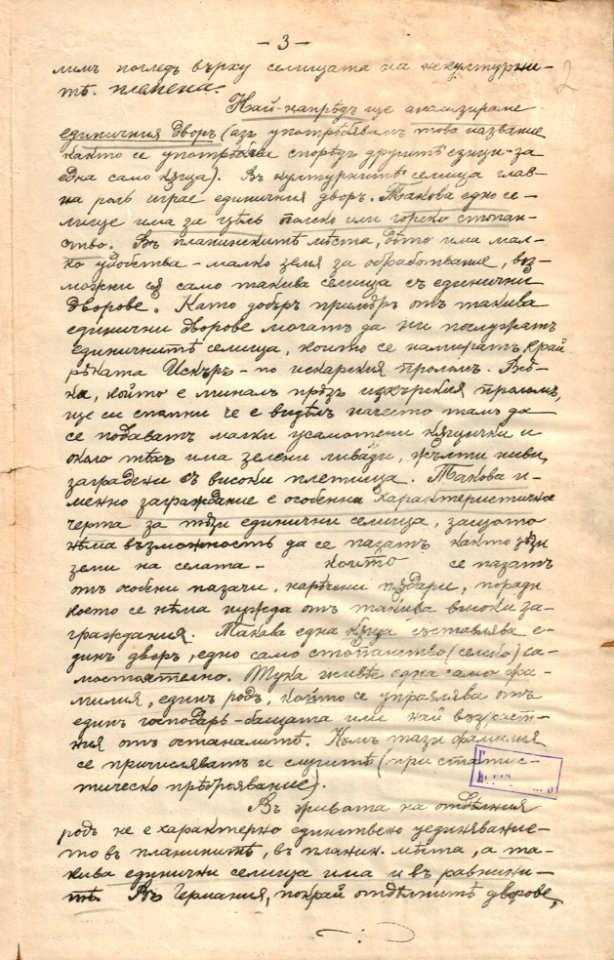 — 3 —
2
лимъ погледъ върху селищата на некултурни-
тѣ племена.
Най-напрѣдъ ще анализираме
единичния дворъ (азъ употрѣбявамъ това название
както се употрѣбява споредъ другитѣ езици - за
една само кѫща). Въ културнитѣ селища глав-
на роль играе единичния дворъ. Такова едно се-
лище има за цѣль полско или горско стопан-
ство. Въ планинскитѣ мѣста, дѣто има мал-
ко удобства - малко земя за обработвание, въз-
можни сѫ само такива селища съ единични
дворове. Като добъръ примѣръ отъ такива
единични дворове могатъ да ни послужатъ
единичнитѣ селища, които се намиратъ край
рѣката Искъръ - по искарския проломъ. Всѣ-
ки, който е миналъ прѣзъ искърския проломъ,
ще си спомни че е видѣлъ начесто тамъ да
се подаватъ малки усамотени кѫщички и
около тѣхъ има зелени ливади, жълти ниви,
заградени съ високи плетища. Такова и-
менно заграждание е особенна характеристична
черта за тѣзи единични селища, защото
нѣма възможность да се пазатъ както тѣзи
земи на селата - които се пазатъ
отъ особени пазачи, наречени пѫдари, поради
което се нѣма нужда отъ такива високи за-
граждания. Такова една кѫща съставлява е-
динъ дворъ, едно само стопанство (селско) са-
мостоятелно. Тука живѣе една само фа-
милия, единъ родъ, който се управлява отъ
единъ господарь - бащата или най възраст-
ния отъ останалитѣ. Къмъ тази фамилия
се причисляватъ и слугитѣ (при статис-
тическо прѣброявание).
Въ живата на отдѣлния
родъ не е характерно единствено уединявание-
то въ планинитѣ, въ планин. мѣста, а та-
кива единични селища има и въ равнини-
тѣ. Въ Германия, покрай отдѣлнитѣ дворове,